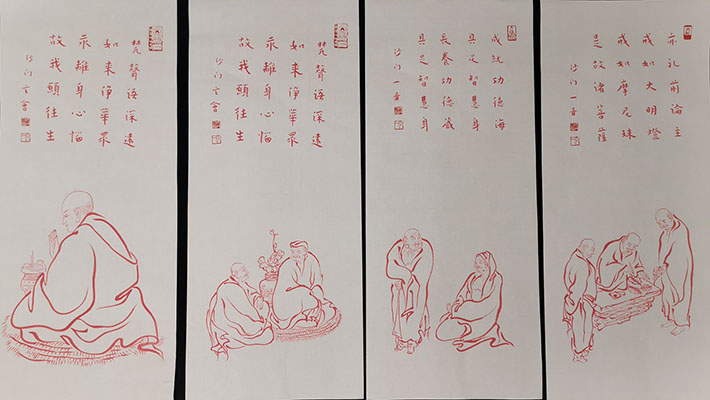 梵聲語深遠
如來淨華眾
永離身心惱
故我願往生
沙門玄會
梵聲語深遠
如來淨華眾
永離身心惱
故我願往生
沙門玄會
成就功德海
具足智慧身
長養功德藏
具足智慧身
沙門一音
亦礼前論主
戒如大明燈
戒如摩尼珠
是故諸菩薩
沙門一音